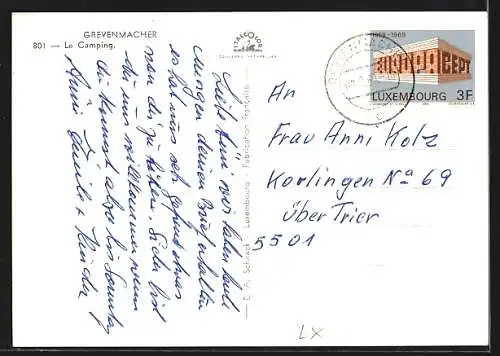 GREVENMACHER
801 — Le Camping.
Liebe Anni wir haben heute
morgen deinen Brief erhalten
es hat uns sehr gefreut etwas
von dir zu hören. Sicher bist
du uns willkommen wenn
du kommst also bis Samstag
E. A. Schaack - Luxembourg - Fabrication française
1959-1969
EUROPA CEPT
LUXEMBOURG 3F
An
Frau Anni Kolz
Korlingen No 69
über Trier
5501
LX